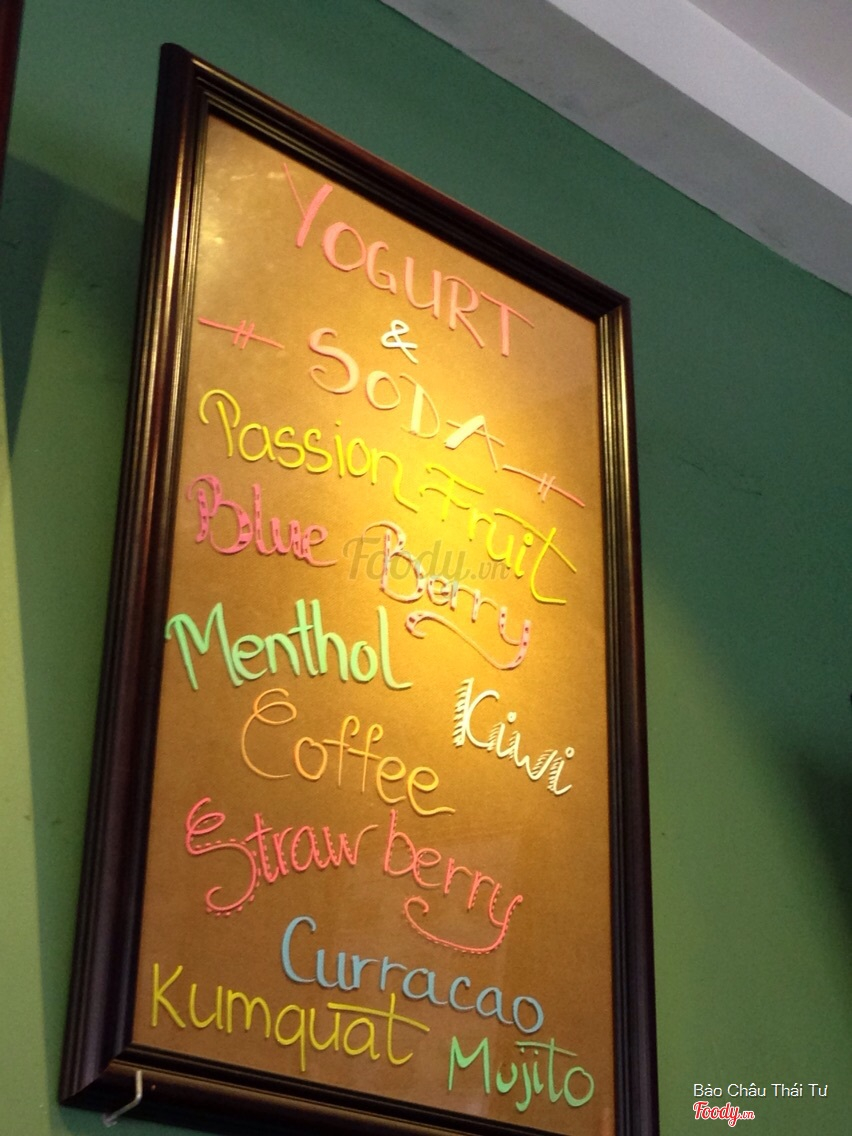 YOGURT
&
SODA
Passion Fruit
Blue Berry
Menthol
Kiwi
Coffee
Strawberry
Curracao
Kumquat
Mujito
Foody.vn
Bảo Châu Thái Tư
Foody.vn